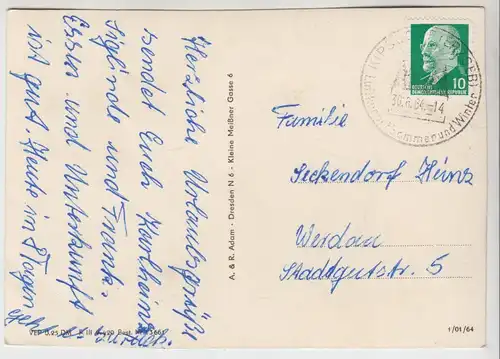 Herzliche Urlaubsgrüße
sendet Euch Karlheinz
Sieglinde und Frank.
Essen und Unterkunft
ist gut. Heute in 8 Tagen
geht es zurück.
A. & R. Adam - Dresden N 6 - Kleine Meißner Gasse 6
10
DEUTSCHE
DEMOKRATISCHE REPUBLIK
30.6.64-14
Sommer und Winter
Familie
Seckendorf Heinz
Werdau
Stadtgutstr. 5
1/01/64